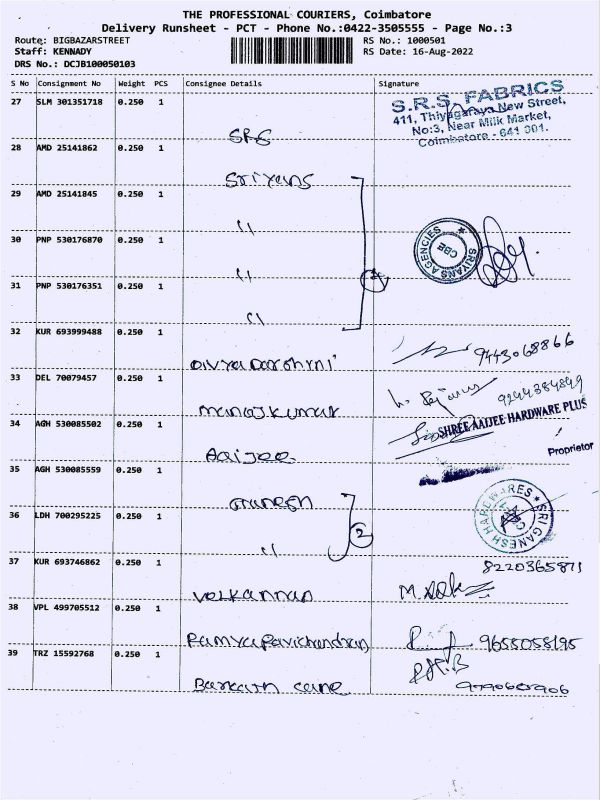 THE PROFESSIONAL COURIERS, Coimbatore
Delivery Runsheet - PCT - Phone No.:0422-3505555 - Page No.:3
Route: BIGBAZARSTREET RS No.: 1000501
Staff: KENNADY RS Date: 16-Aug-2022
DRS No.: DCJB100050103
S No Consignment No Weight PCS Consignee Details Signature
27 SLM 301351718 0.250 1
S.R.S. FABRICS
411, Thiyagaraya New Street,
No:3, Near Milk Market,
Coimbatore - 641 001.
SRS
28 AMD 25141862 0.250 1
Sriyans
29 AMD 25141845 0.250 1
"
30 PNP 530176870 0.250 1
SRIYANS AGENCIES
CBE
"
31 PNP 530176351 0.250 1
4
"
32 KUR 693999488 0.250 1
Divya Darshni 9443068866
33 DEL 70079457 0.250 1
Manoj Kumar 9244384849
34 AGH 530085502 0.250 1
SHREE AAIJEE HARDWARE PLUS
Proprietor
Aaijee
35 AGH 530085559 0.250 1
Ganesh
36 LDH 700295225 0.250 1
SRI GANESH HARDWARES
2
"
37 KUR 693746862 0.250 1
8220365871
Velkannan
38 VPL 499705512 0.250 1
Ramya Ravichandran 9655058195
39 TRZ 15592768 0.250 1